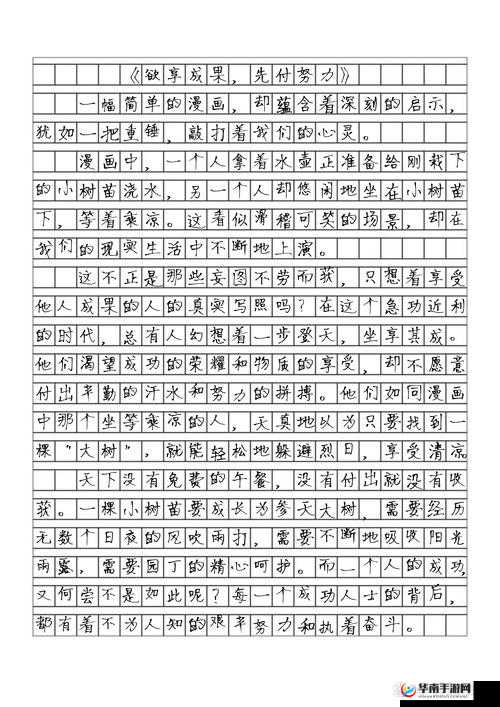 《欲享成果，先付努力》
一幅简单的漫画，却蕴含着深刻的启示，
犹如一把重锤，敲打着我们的心灵。
漫画中，一个人拿着水壶正准备给刚栽下
的小树苗浇水，另一个人却悠闲地坐在小树苗
下，等着乘凉。这看似滑稽可笑的场景，却在
我们的现实生活中不断地上演。
这不正是那些妄图不劳而获，只想着享受
他人成果的人的真实写照吗？在这个急功近利
的时代，总有人幻想着一步登天，坐享其成。
他们渴望成功的荣耀和物质的享受，却不愿意
付出辛勤的汗水和努力的拼搏。他们如同漫画
中那个坐等乘凉的人，天真地以为只要找到一
棵“大树”，就能轻松地躲避烈日，享受清凉
天下没有免费的午餐，没有付出就没有收
获。一棵小树苗要成长为参天大树，需要经历
无数个日夜的风吹雨打，需要不断地吸收阳光
雨露，需要园丁的精心呵护。而一个人的成功，
又何尝不是如此呢？每一个成功人士的背后，
都有着不为人知的艰辛努力和执着奋斗。
华南手游网